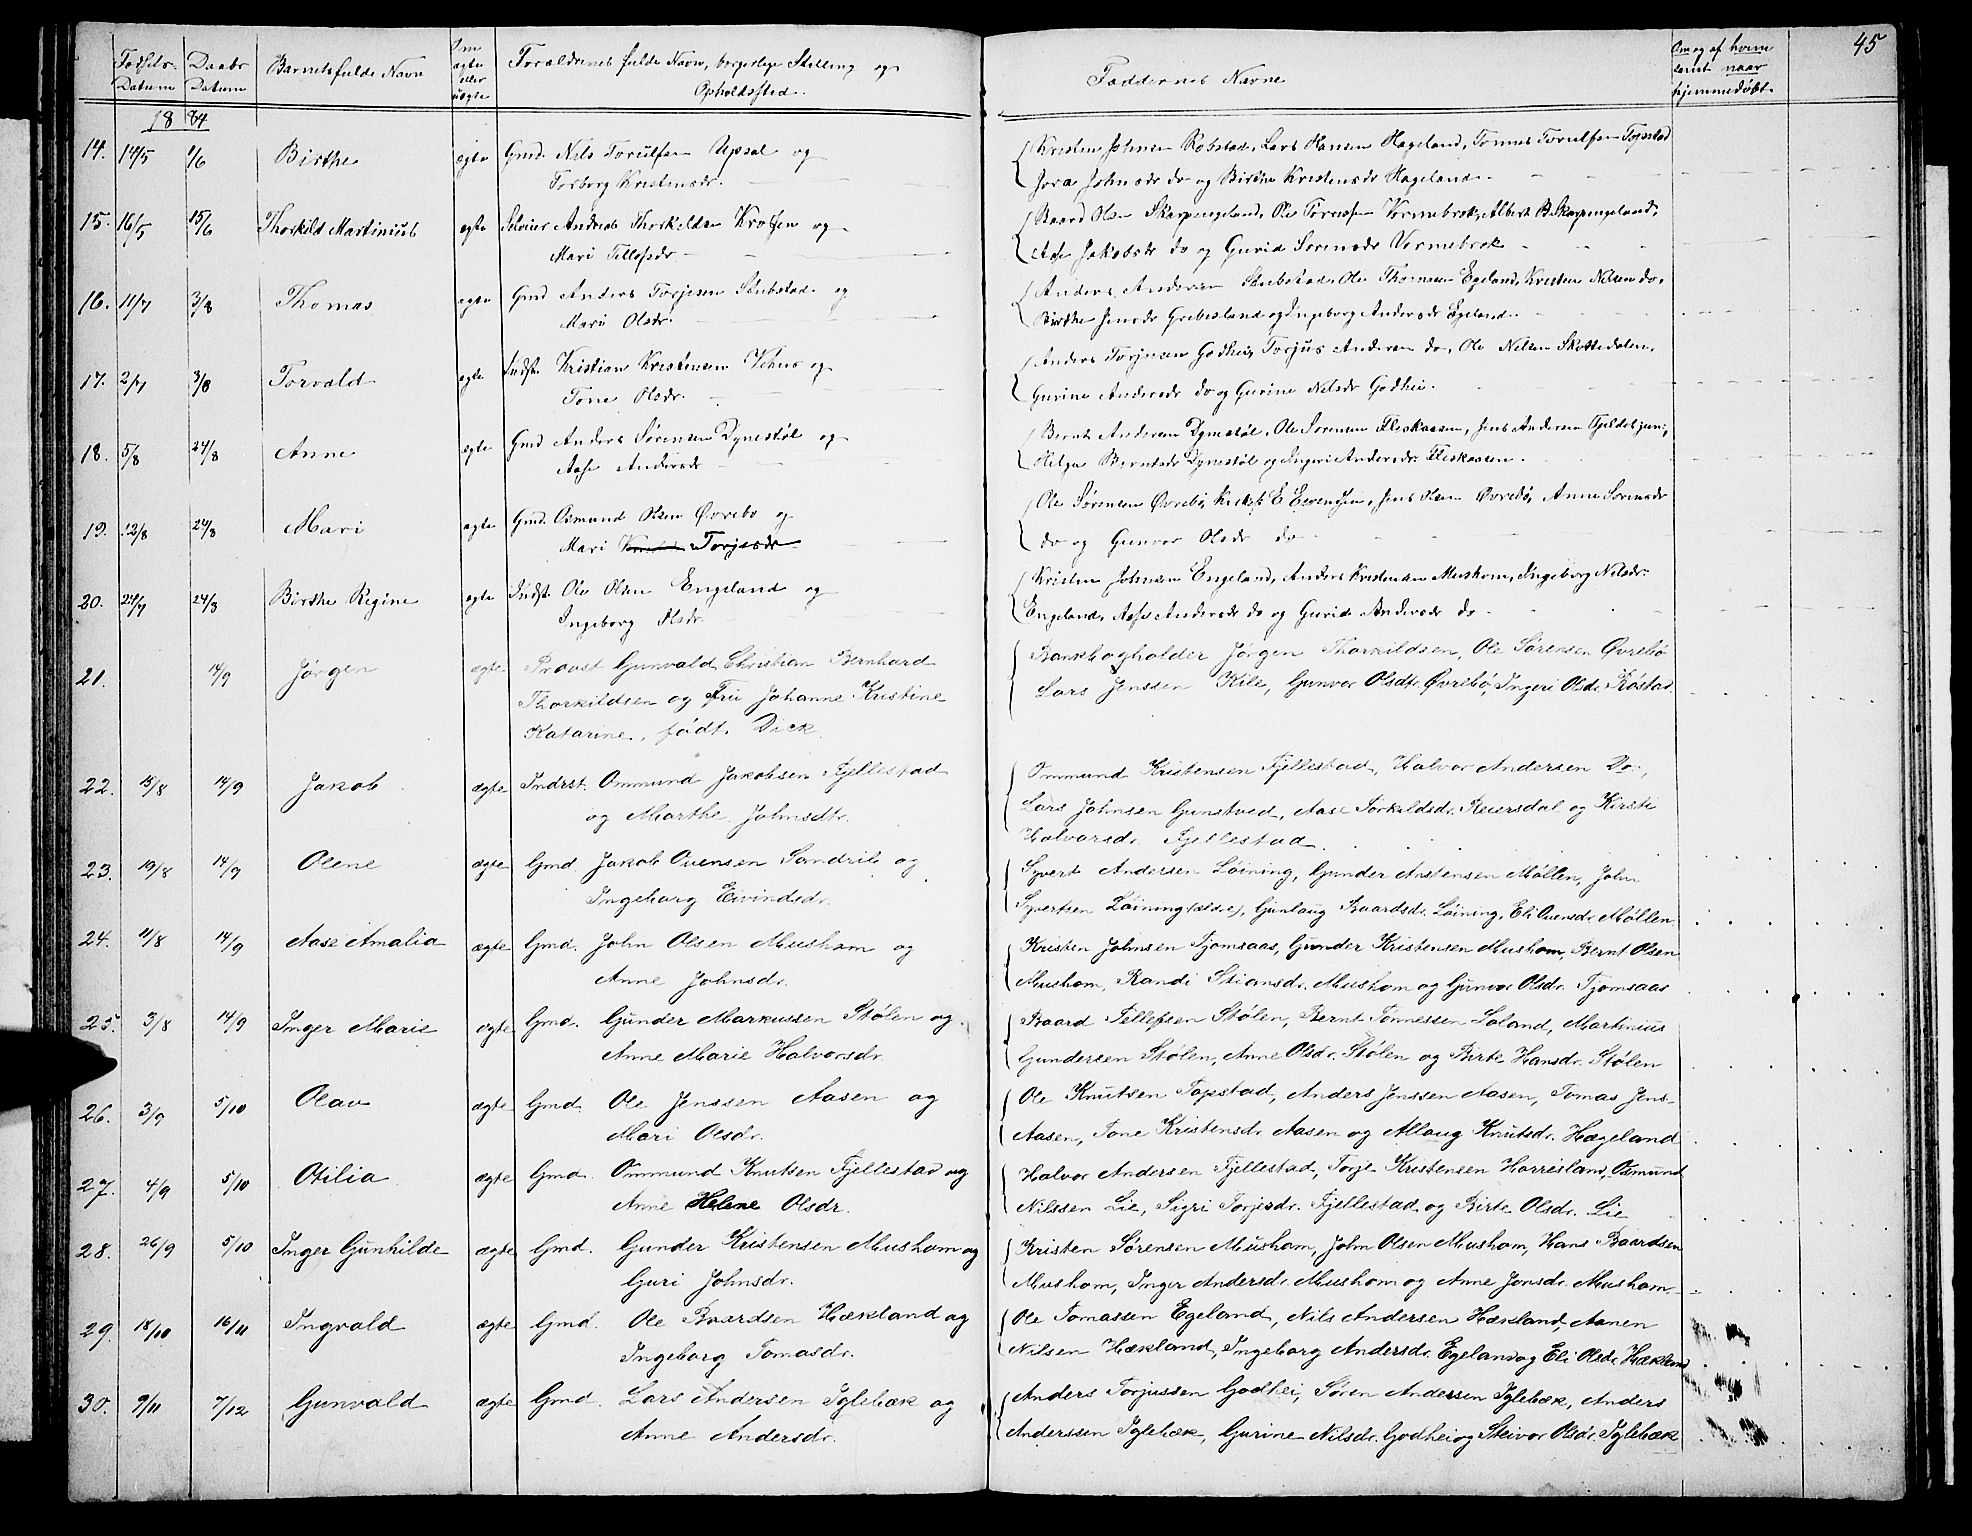 45
Fødsels- Datum
Daabs Datum
Barnets fulde Navn
Om ægte eller uægte
Forældrenes fulde Navn, borgerlige Stilling og Opholdssted.
Faddernes Navne
Om og af hvem samt naar hjemmedøbt.
1884
14. 14/5 1/6 Birthe egte Gmd. Nils Torulfsen Upsal og
Torborg Kristensdr.
Kristen Johnsen Røbstad, Lars Hansen Hageland, Tønnes Torulfsen Topstad
Jora Johnsdr do og Birthe Kristensdr Hageland.
15. 16/5 15/6 Thorkild Martinius egte Andreas Thorkildsen og
Mari Tellefsdr.
Baard Olsen Skarpengeland, Ole Tørresen Vormebrok, Albert B. Skarpengeland,
Aase Jakobsdr do og Gurid Sørensdr Vormebrok
16. 11/7 3/8 Thomas egte Gmd Anders Torjesen Stubstad og
Mari Olsdr.
Anders Andersen Stubstad, Ole Thomsen Egeland, Kristen Nilsen do.
Birthe Jensdr Grebesland og Ingeborg Andersdr Egeland.
17. 2/7 3/8 Torvald egte Indst. Kristian Kristensen Vehus og
Tone Olsdr.
Anders Torjusen Godhei, Torjus Andersen do, Ole Nelsen Skottedalen,
Gurine Andersdr do og Gurine Nelsdr Godhei.
18. 5/8 24/8 Anne egte Gmd Anders Sørensen Dynestøl og
Aase Andersdr
Bernt Andersen Dynestøl, Ole Sørensen Fleskaasen, Jens Andersen jun.,
Helga Berntsdr Dynestøl og Ingeri Andersdr. Fleskaasen.
19. 12/8 24/8 Mari egte Gmd. Osmund Olsen Øvrebø og
Mari Torjesdr
Ole Sørensen Øvrebø, E Eivendsen, Jens Olsen Øvrebø, Anne Sørensdr
do og Gunvor Olsdr do
20. 24/7 24/8 Birthe Regine egte Indst. Ole Olsen Engeland og
Ingeborg Olsdr.
Kristen Johnsen Engeland, Anders Kristensen Mushom, Ingeborg Nelsdr.
Engeland, Aase Andersdr do og Gurid Andersdr do
21. 14/9 Jørgen ægte Provst Gunvald Christian Bernhard
Thorkildsen og Fru Johanne Kristine
Katarine, født Dick
Bankbogholder Jørgen Thorkildsen, Ole Sørensen Øvrebø
Lars Jenssen Kile, Gunvor Olsdtr. Øvrebø, Ingeri Olsdr. Røstad
22. 15/8 14/9 Jakob ægte Inderst. Ommund Jakobsen Fjellestad
og Marthe Johnsdtr.
Ommund Kristensen Fjellestad, Halvor Andersen Do.,
Lars Johnsen Gunstved, Aase Torkildsdr. Reiersdal og Kirsti
Halvorsdr. Fjellestad
23. 19/8 14/9 Olene ægte Gmd. Jakob Ovensen Sandrib og
Ingeborg Eivindsdr.
Syvert Andersen Løining, Gunder Anstensen Møllen, John
Syvertsen Løining (ældre), Gunlaug Baardsdr. Løining, Eli Ovensdr. Møllen
24. 11/8 14/9 Aase Amalia ægte Gmd. John Olsen Mushom og
Anne Johnsdr.
Kristen Johnsen Tjomsaas, Gunder Kristensen Mushom, Bernt Olsen
Mushom, Randi Stiansdr. Mushom og Gunvor Olsdr. Tjomsaas
25. 3/8 14/9 Inger Marie ægte Gmd. Gunder Markussen Stølen og
Anne Marie Halvorsdr.
Baard Tellefsen Stølen, Bernt Tønnessen Loland, Martinius
Gundersen Stølen, Anne Olsdr. Stølen og Birte Hansdr. Stølen
26. 3/9 5/10 Olav ægte Gmd. Ole Jenssen Aasen og
Mari Olsdr.
Ole Knutsen Topstad, Anders Jenssen Aasen, Tomas Jens-
Aasen, Tone Kristensdr. Aasen og Allaug Knutsdr. Hægeland
27. 4/9 5/10 Otilia ægte Gmd. Ommund Knutsen Fjellestad og
Anne Helene Olsdr.
Halvor Andersen Fjellestad, Torje Kristensen Horrisland, Osmund
Nilssen Lie, Sigri Torjesdr. Fjellestad og Birte Olsdr. Lie
28. 26/9 5/10 Inger Gunhilde ægte Gmd. Gunder Kristensen Mushom og
Guri Johnsdr.
Kristen Sørensen Mushom, John Olsen Mushom, Hans Baardsen
Mushom, Inger Andersdr. Mushom og Anne Jonsdr. Mushom
29. 18/10 16/11 Ingvald ægte Gmd. Ole Baardsen Hækland og
Ingeborg Tomasdr.
Ole Tomassen Egeland, Nils Andersen Hækland, Aanen
Nilsen Hækland, Ingeborg Andersdr. Egeland og Eli Olsdr. Hækland
30. 9/11 7/12 Gunvald ægte Gmd. Lars Andersen Iglebæk og
Anne Andersdr.
Anders Torjussen Godhei, Søren Andersen Iglebæk, Anders
Anderssen Iglebæk, Gurine Nilsdr. Godhei og Steivor Olsdr. Iglebæk